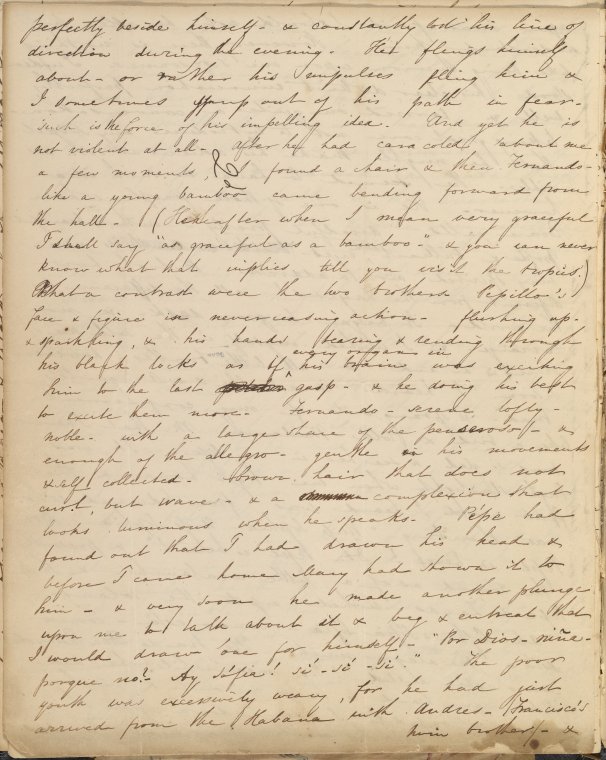 perfectly beside himself - & constantly lost his line of
direction during the evening. He flings himself
about - or rather his impulses fling him &
I sometimes jump out of his path in fear -
such is the force of his impelling idea. And yet he is
not violent at all - after he had caracoled about me
a few moments, he found a chair & then Fernando -
like a young bamboo came bending forward from
the hall - (Hereafter when I mean very graceful
I shall say "as graceful as a bamboo" - & you can never
know what that implies till you visit the tropics.)
What a contrast were the two brothers Pepillo's
face & figure in never ceasing action - flushing up -
& sparkling, & his hands tearing & rending through
his black locks as if every organ in his brain was exciting
him to the last gasp - & he doing his best
to excite them more. Fernando - serene, lofty -
noble - with a large share of the penseroso - &
enough of the allegro - gentle in his movements
& self collected - brown hair that does not
curl, but wave - & a complexion that
looks luminous when he speaks - Pépe had
found out that I had drawn his head &
before I came home Mary had shown it to
him - & very soon he made another plunge
upon me to talk about it & beg & entreat that
I would draw one for himself - "Por Dios - niña -
porque no? - Ay Sófia! sí - sé - sí -" The poor
youth was excessively weary, for he had just
arrived from the Habana with Andres - (Francisco's
twin brother) - &